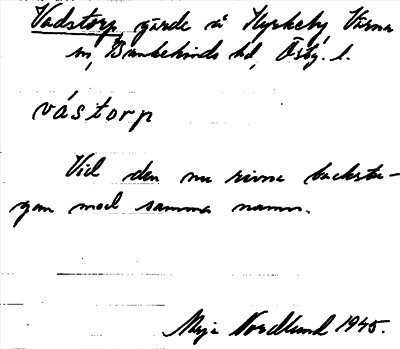 Vadstorp gärde å Kyrkeby Värna
sn, Bankekinds hd, Östg. l.
vástorp
Vid den nu rivna backstu-
gan med samma namn.
Maja Nordlund 1945.